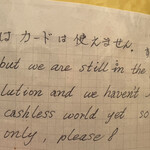 カードは使えません。
but we are still in the
lution and we haven't
cashless world yet so
only, please!